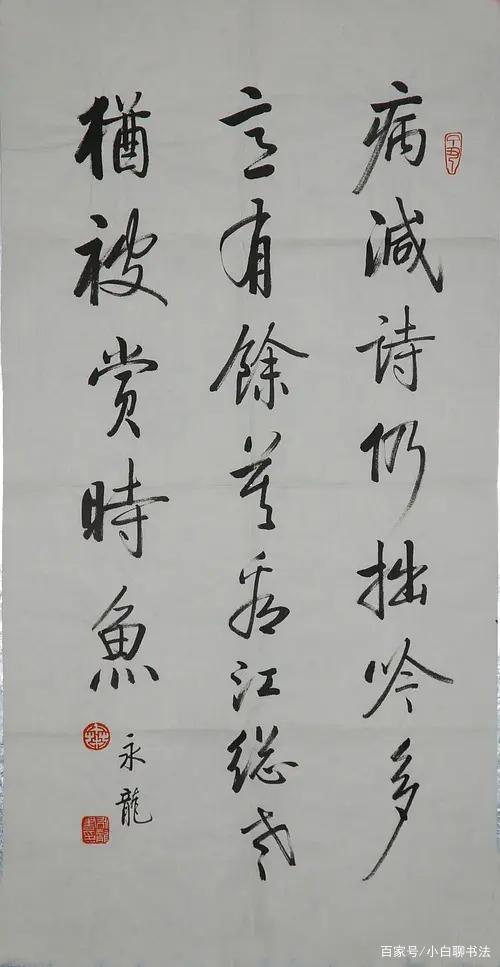 病減詩仍拙吟多
意有餘莫看江総老
猶被賞時魚
永龍
百家号/小白聊书法